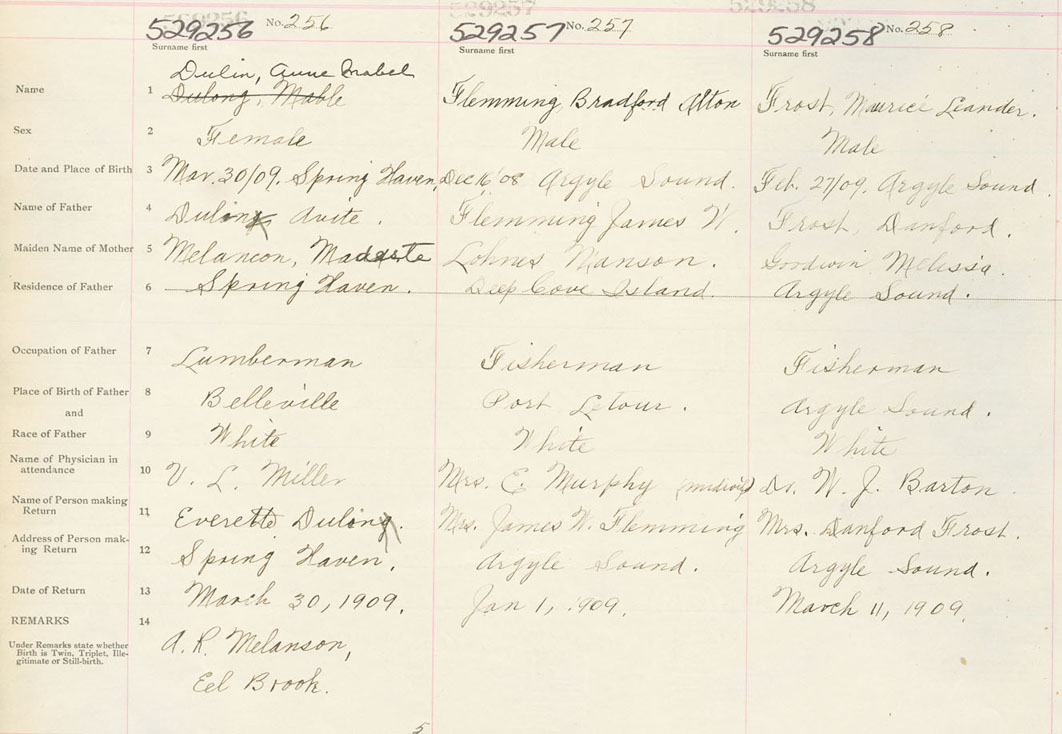 529256 529257 529258
529256 No. 256 529257 No. 257 529258 No. 258
Surname first Surname first Surname first
Dulin, Anne Mabel
Name 1 Dulong, Mable Flemming Bradford Alton Frost, Maurice Leander.
Sex 2 Female Male Male
Date and Place of Birth 3 Mar. 30/09. Spring Haven, Dec 16, '08 Argyle Sound. Feb. 27/09. Argyle Sound
Name of Father 4 Dulong Avite. Flemming James W. Frost, Danford.
Maiden Name of Mother 5 Melancon, Lohnes Manson. Goodwin Melissa.
Residence of Father 6 Spring Haven. Deep Cove Island. Argyle Sound.
Occupation of Father 7 Lumberman Fisherman Fisherman
Place of Birth of Father 8 Belleville Port Letour. Argyle Sound.
and
Race of Father 9 White White White
Name of Physician in
attendance 10 V. L. Miller Mrs. E. Murphy (midwife) Dr. W. J. Barton
Name of Person making
Return 11 Everette Dulong. Mrs. James W. Flemming Mrs. Danford Frost.
Address of Person mak-
ing Return 12 Spring Haven. Argyle Sound. Argyle Sound.
Date of Return 13 March 30, 1909. Jan 1, 1909. March 11, 1909
REMARKS 14
Under Remarks state whether
Birth is Twin, Triplet, Ille-
gitimate or Still-birth.
A. R. Melanson,
Eel Brook.
5